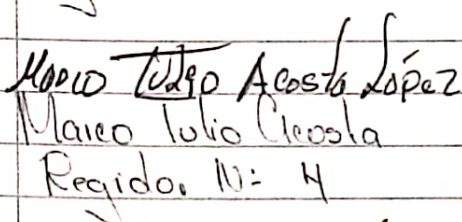 Marco Tulio Acosta López
Marco Tulio Acosta
Regidor N: 4